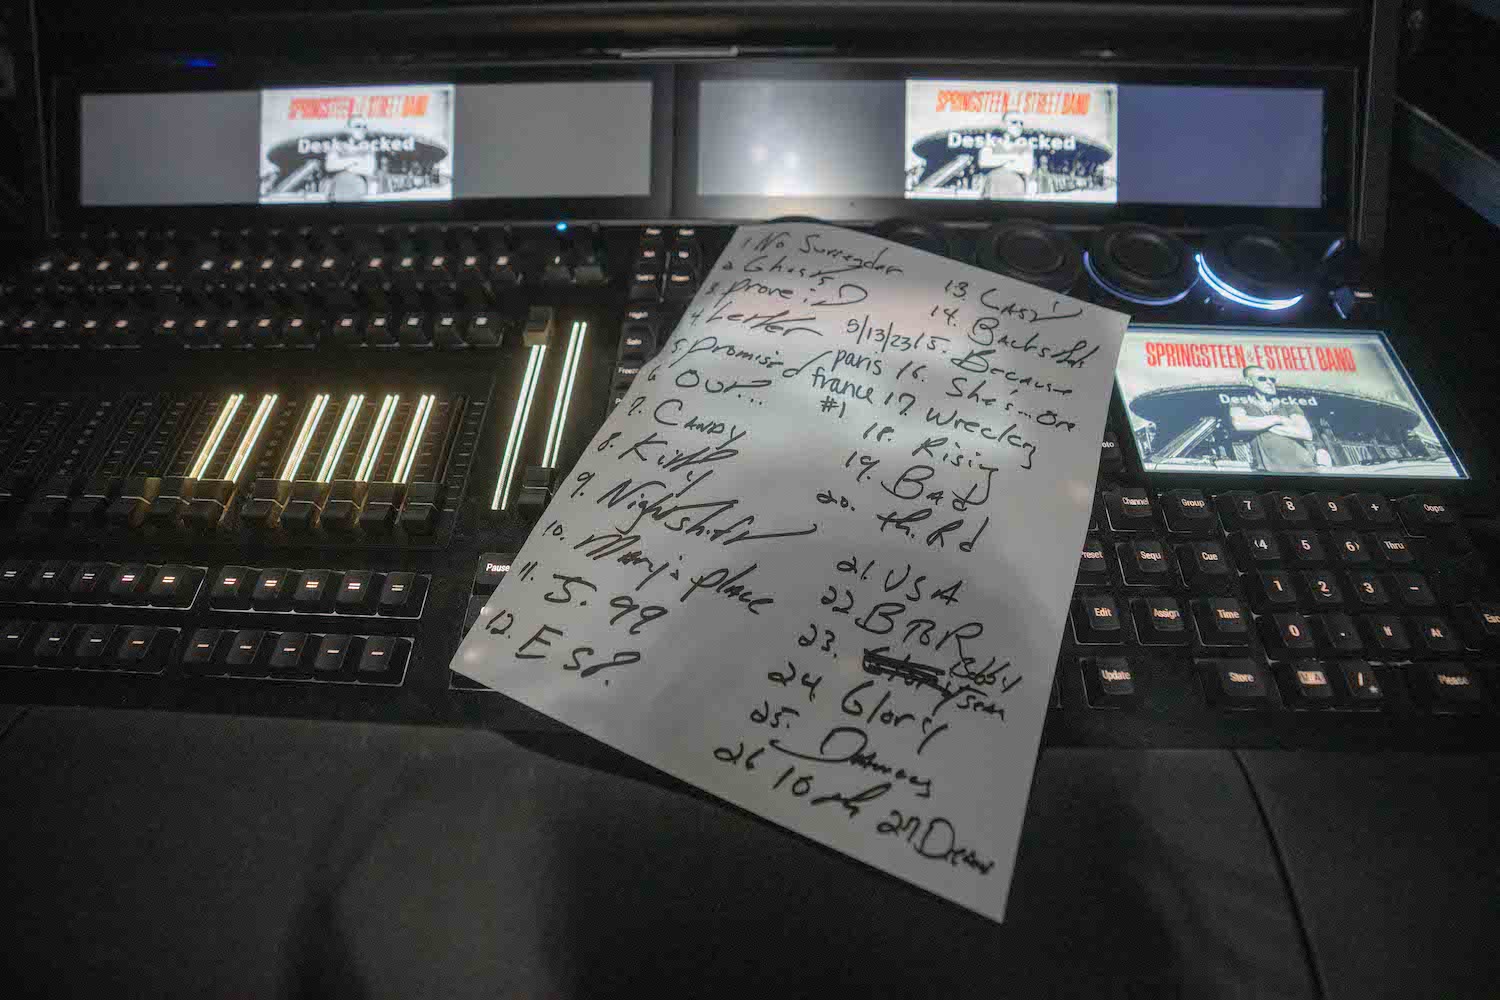 SPRINGSTEEN & E STREET BAND
Desk Locked
SPRINGSTEEN & E STREET BAND
Desk Locked
SPRINGSTEEN & E STREET BAND
Desk Locked
1. No Surrender
2. Ghosts
3. Prove: D
4. Letter
5. Promised
6. Our...
7. Candy
8. Kitty
9. Nightshift
10. Mary's place
11. J. 99
12. E S?.
5/13/23
paris
france
#1
13. Last
14. Backsts
15. Because
16. She's... One
17. Wrecking
18. Rising
19. Bad
20. th. Rd
21. USA
22. BTBR
23. Bobby Jean
24. Glory
25. Dancing
26 10th
27 Dream
Pause
Channel
Group
7 8 9 +
Oops
Preset
Sequ
Cue
4 5 6 Thru
1 2 3 -
Edit
Assign
Time
0 . At
Esc
Update
Store
Please